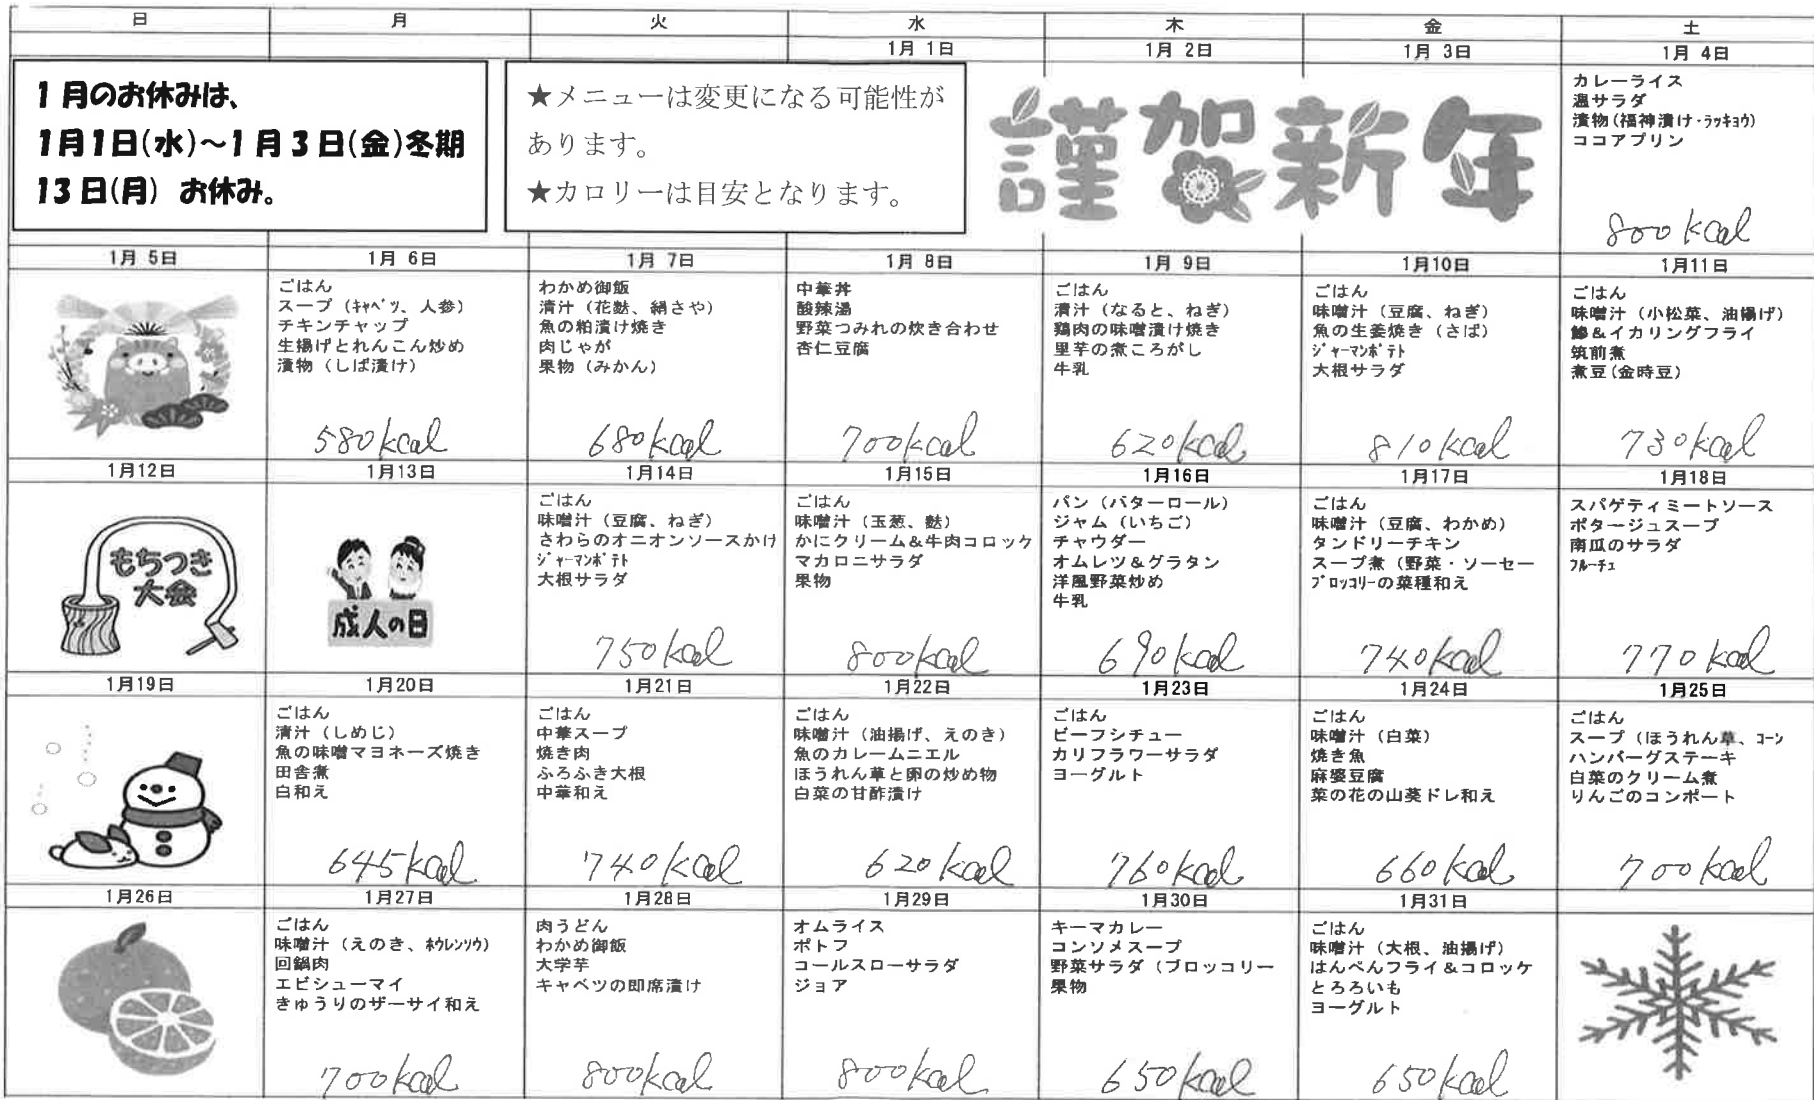 日
月
火
水
木
金
土
1月 1日
1月 2日
1月 3日
1月 4日
1月のお休みは、
1月1日(水)～1月3日(金)冬期
13日(月) お休み。
★メニューは変更になる可能性が
あります。
★カロリーは目安となります。
謹賀新年
カレーライス
温サラダ
漬物(福神漬け・ラッキョウ)
ココアプリン
800kcal
1月 5日
1月 6日
1月 7日
1月 8日
1月 9日
1月10日
1月11日
ごはん
スープ（キャベツ、人参）
チキンチャップ
生揚げとれんこん炒め
漬物（しば漬け）
580kcal
わかめ御飯
清汁（花麩、絹さや）
魚の粕漬け焼き
肉じゃが
果物（みかん）
680kcal
中華丼
酸辣湯
野菜つみれの炊き合わせ
杏仁豆腐
700kcal
ごはん
清汁（なると、ねぎ）
鶏肉の味噌漬け焼き
里芋の煮ころがし
牛乳
620kcal
ごはん
味噌汁（豆腐、ねぎ）
魚の生姜焼き（さば）
ジャーマンポテト
大根サラダ
810kcal
ごはん
味噌汁（小松菜、油揚げ）
鯵＆イカリングフライ
筑前煮
煮豆(金時豆)
730kcal
1月12日
1月13日
1月14日
1月15日
1月16日
1月17日
1月18日
もちつき
大会
成人の日
ごはん
味噌汁（豆腐、ねぎ）
さわらのオニオンソースかけ
ジャーマンポテト
大根サラダ
750kcal
ごはん
味噌汁（玉葱、麩）
かにクリーム＆牛肉コロック
マカロニサラダ
果物
800kcal
パン（バターロール）
ジャム（いちご）
チャウダー
オムレツ＆グラタン
洋風野菜炒め
牛乳
690kcal
ごはん
味噌汁（豆腐、わかめ）
タンドリーチキン
スープ煮（野菜・ソーセー
ブロッコリーの菜種和え
740kcal
スパゲティミートソース
ポタージュスープ
南瓜のサラダ
フルーチェ
770kcal
1月19日
1月20日
1月21日
1月22日
1月23日
1月24日
1月25日
ごはん
清汁（しめじ）
魚の味噌マヨネーズ焼き
田舎煮
白和え
645kcal
ごはん
中華スープ
焼き肉
ふろふき大根
中華和え
740kcal
ごはん
味噌汁（油揚げ、えのき）
魚のカレームニエル
ほうれん草と卵の炒め物
白菜の甘酢漬け
620kcal
ごはん
ビーフシチュー
カリフラワーサラダ
ヨーグルト
760kcal
ごはん
味噌汁（白菜）
焼き魚
麻婆豆腐
菜の花の山葵ドレ和え
660kcal
ごはん
スープ（ほうれん草、コーン
ハンバーグステーキ
白菜のクリーム煮
りんごのコンポート
700kcal
1月26日
1月27日
1月28日
1月29日
1月30日
1月31日
ごはん
味噌汁（えのき、ホウレンソウ）
回鍋肉
エビシューマイ
きゅうりのザーサイ和え
700kcal
肉うどん
わかめ御飯
大学芋
キャベツの即席漬け
800kcal
オムライス
ポトフ
コールスローサラダ
ジョア
800kcal
キーマカレー
コンソメスープ
野菜サラダ（ブロッコリー
果物
650kcal
ごはん
味噌汁（大根、油揚げ）
はんぺんフライ＆コロッケ
とろろいも
ヨーグルト
650kcal